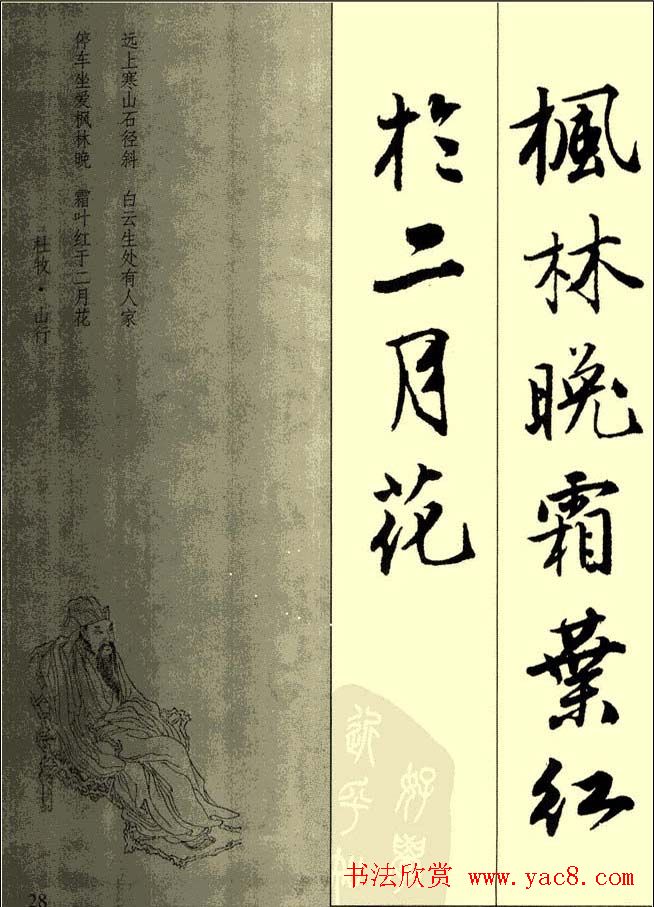 楓林晚霜葉紅
於二月花
远上寒山石径斜 白云生处有人家
停车坐爱枫林晚 霜叶红于二月花
杜牧·山行
好學
近乎知
28
书法欣赏 www.yac8.com